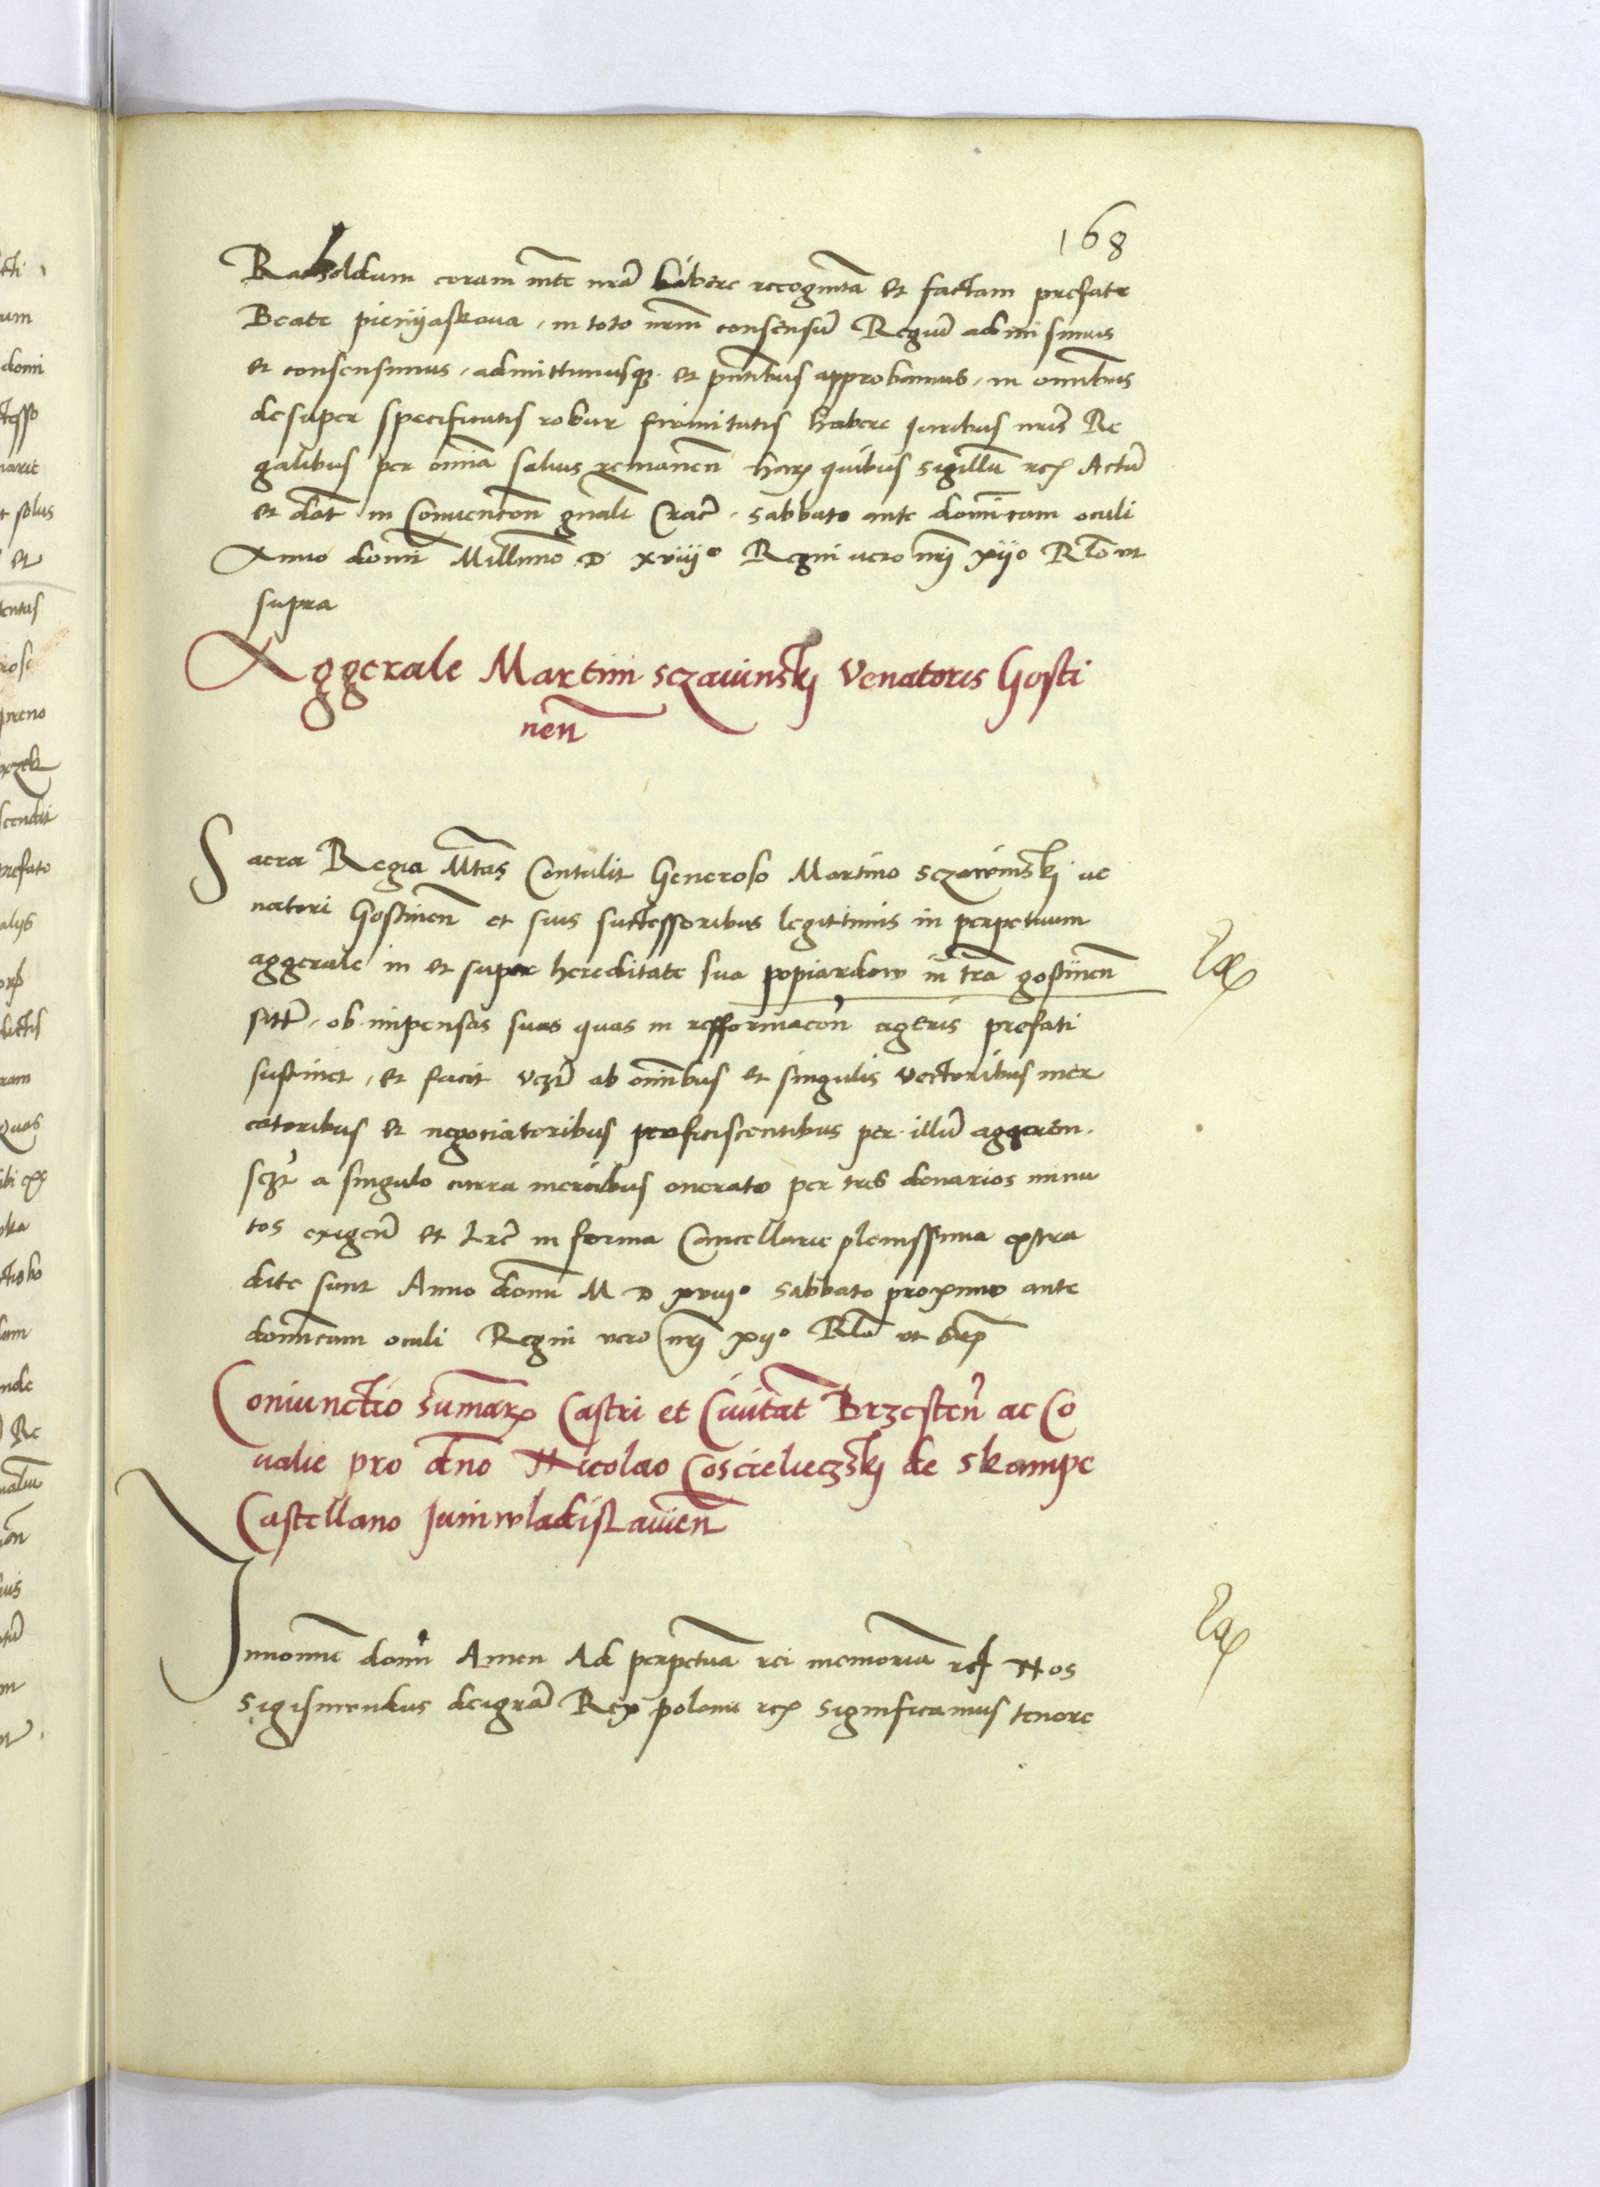 168
Racholdum coram mte nra libere recognita et factam prefate
Beate pienyaskowa, in toto nrm consensu Regiu admisimus
et consensimus, admittimusq et pntibus approbamus, in omnibus
desuper specificatis robur firmitatis habere iuribus nris Re
galibus per omia salvis remanen harz quibus sigillu rcz Actu
et dat in Convencon gnali Crac. sabbato ante dominicam oculi
Anno domi Millmo D xviiiº Regni vero nri xiiº Rlo ut
supra
Aggerale Martini sczawinski Venatoris Gosti
nen
Sacra Regia Mtas Contulit Generoso Martino sczawinski ve
natori Gostinen et suis successoribus legittimis in perpetuum
aggerale in et super hereditate sua popiardow in tra gostinen
sitt. ob impensas suas quas in reformacon ageris prefati
sustinet, et facit vczt ab omnibus et singulis vectoribus mer
catoribus et negociatoribus proficiscentibus per illu aggerem.
sczt a singulo curru mercibus onerato per tres denarios minu
tos exigen et lre in forma Cancellarie plenissima extra
dite sunt Anno domi M D xviiiº sabbato proximo ante
dominicam oculi Regni vero nri xiiº Rlo ut sup
Coniunctio sumarz Castri et Civitat Brzesten ac Co
valie pro dno Nicolao Coscieleczski de Skampe
Castellano Juniwladislavien
In nomine domi Amen Ad perpetua rei memoria rcz Nos
sigismundus dei gra Rex polonie rcz significamus tenore